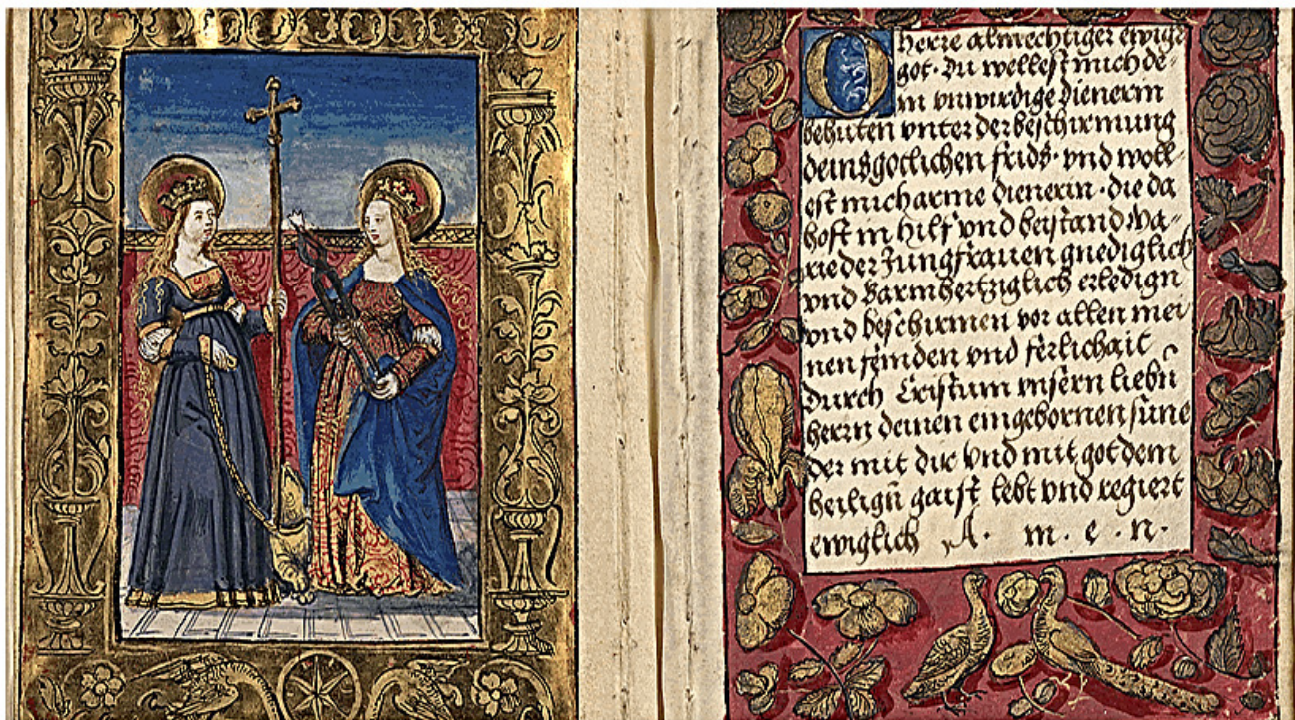 O herre almechtiger ewige
got· du wellest mich de-
in vnwirdige dienerin
behüten vnter der beschirmung
deins gotlichen frids· vnd woll-
est mich arme dienerin· die da
hoft in hilf vnd beistand Ma-
rie der Jungfrauen gnediglich
vnd Barmhertziglich erledign
vnd beschirmen vor allen mei
nen feinden vnd ferlichait
durch Cristum vnsern liebn̄
herrn deinen eingebornen sune
der mit dir vnd mit got dem
heilign̄ gaist lebt vnd regiert
ewiglich A· m· e· n·